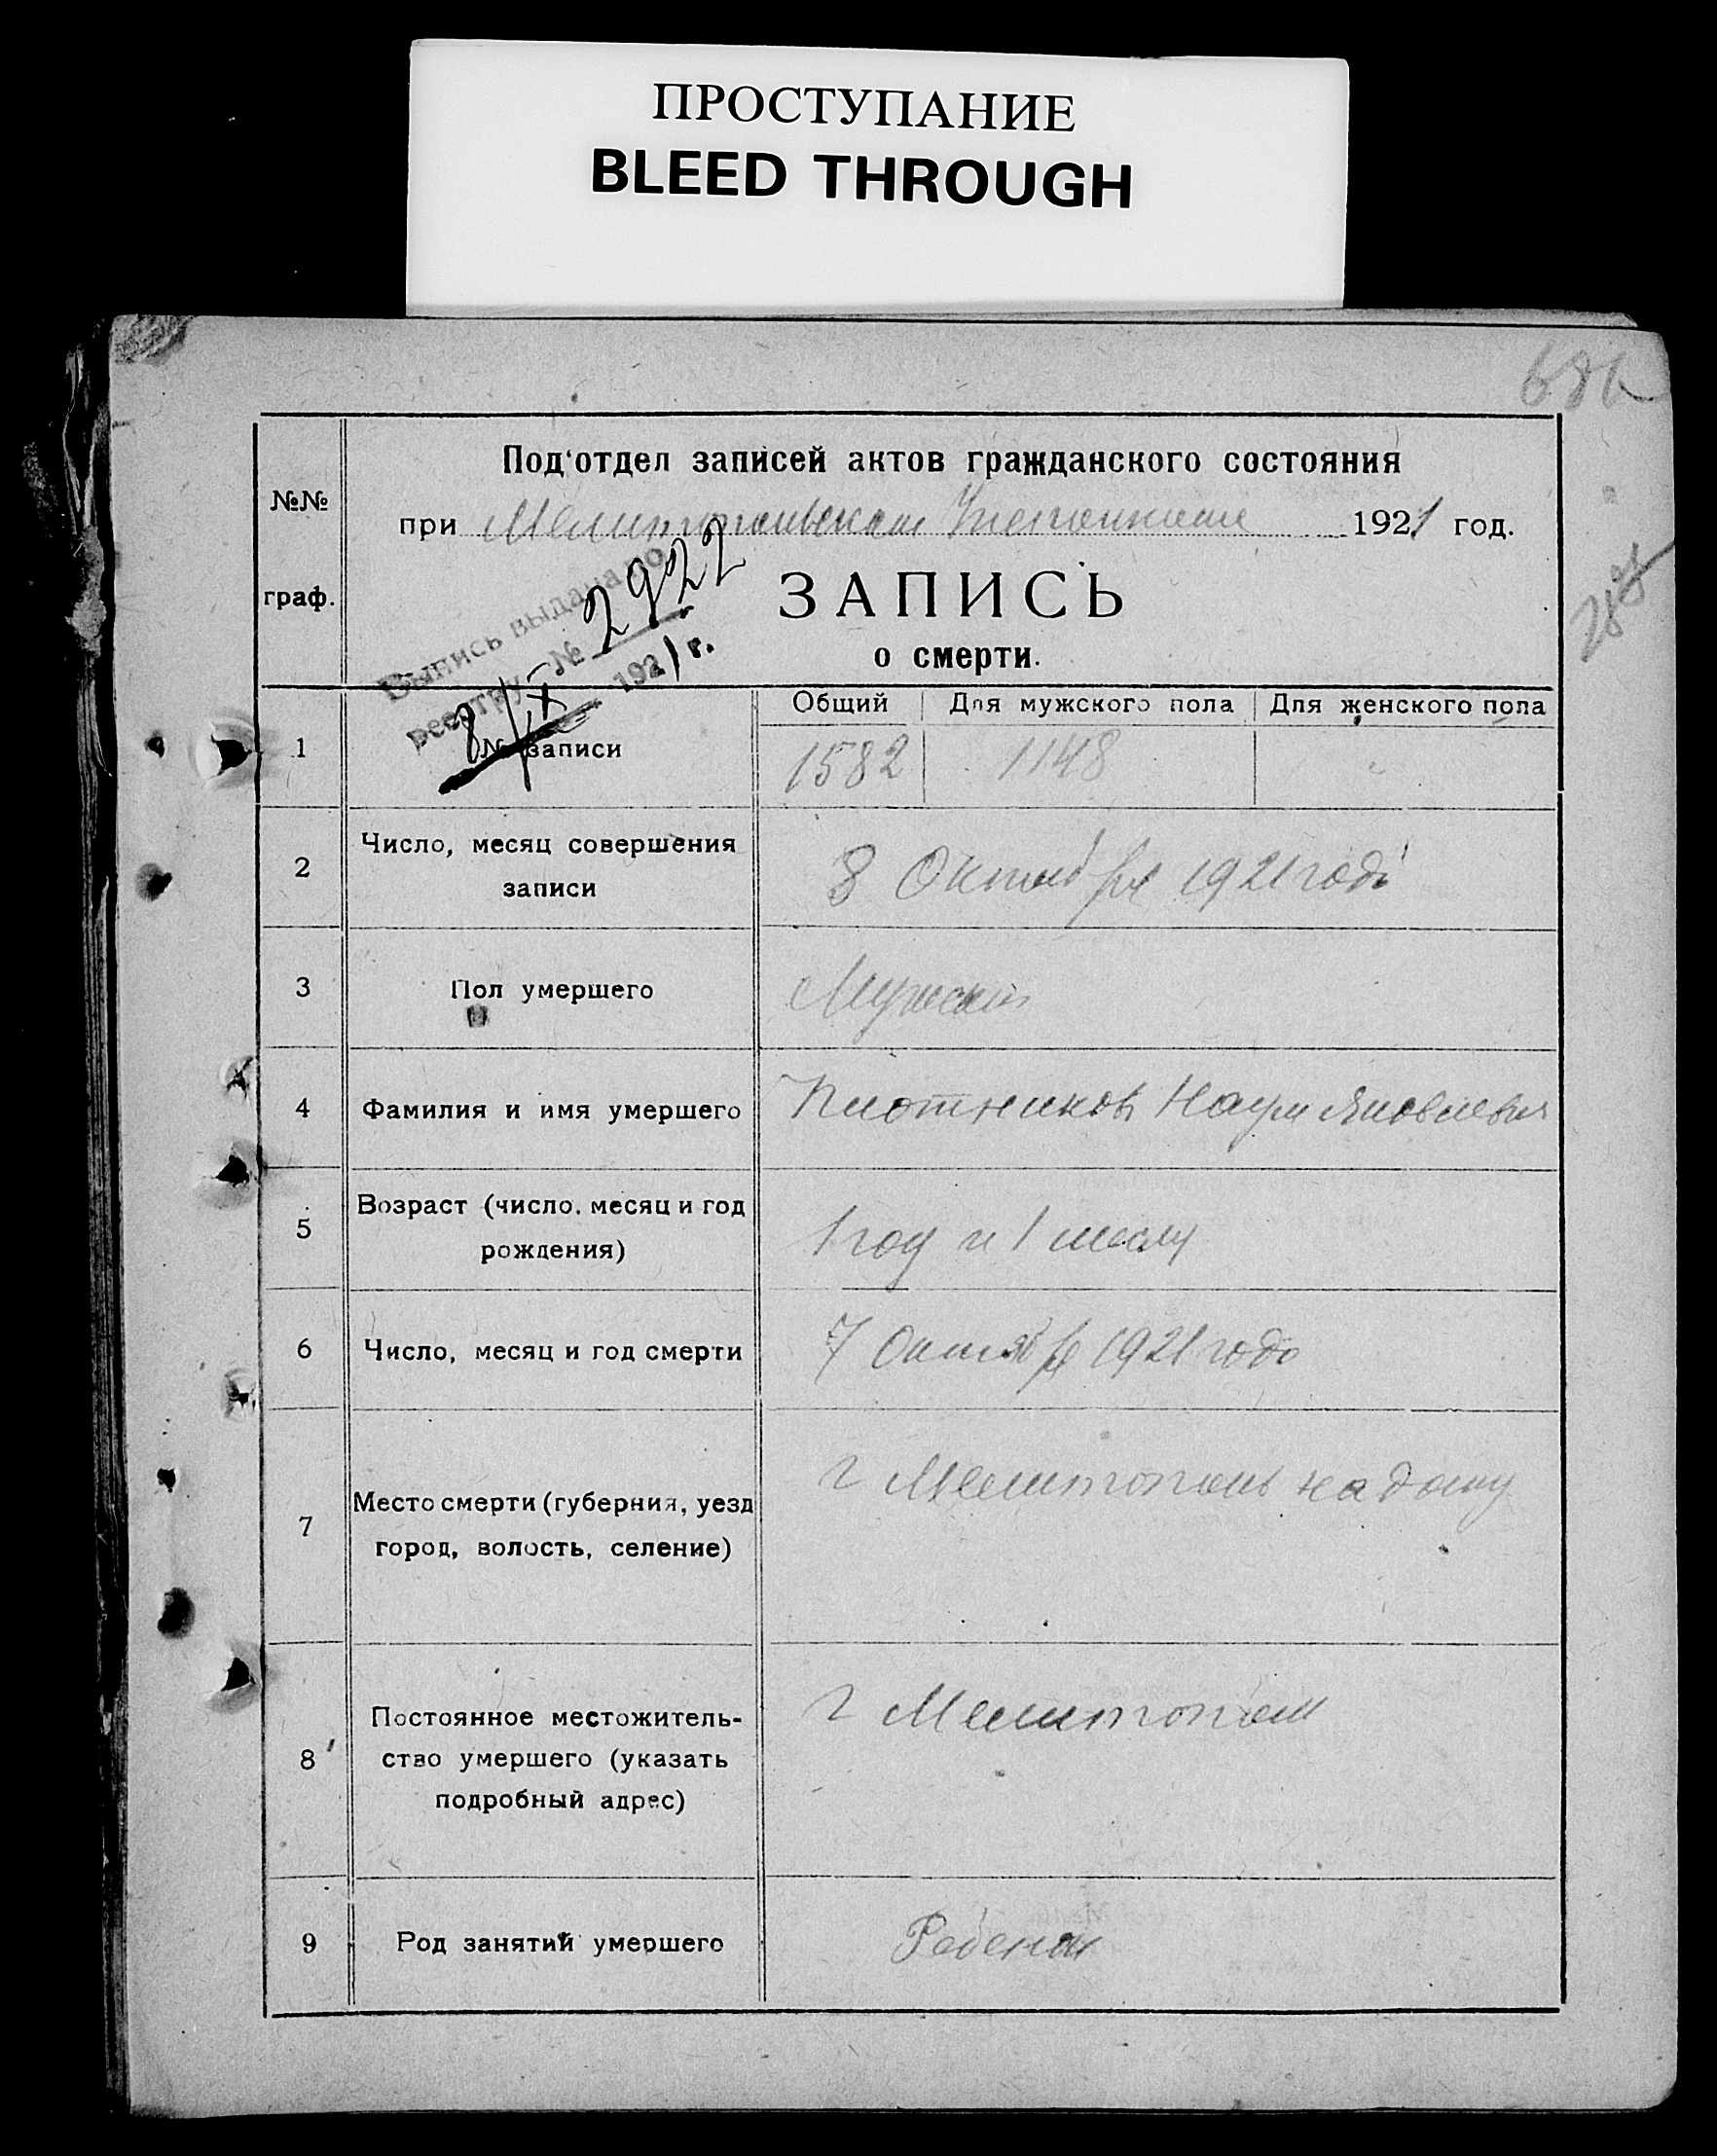 ПРОСТУПАНИЕ
BLEED THROUGH
686
№№
граф.
Под‘отдел записей актов гражданского состояния
при Мелитопольском 1921 год.
Выпись выдана по
реестру № 2922
8/X 1921 г.
ЗАПИСЬ
о смерти.
Общий Для мужского пола Для женского пола
1 № записи 1582 1148 "
2 Число, месяц совершения
записи
8 Октября 1921 года
3 Пол умершего Мужской
4 Фамилия и имя умершего Плотников Наум Яковлевич
5 Возраст (число, месяц и год
рождения)
1 год и 1 месяц
6 Число, месяц и год смерти 7 Октября 1921 года
7 Место смерти (губерния, уезд
город, волость, селение)
г Мелитополь на дому
8 Постоянное местожитель-
ство умершего (указать
подробный адрес)
г Мелитополь
9 Род занятий умершего Ребенок